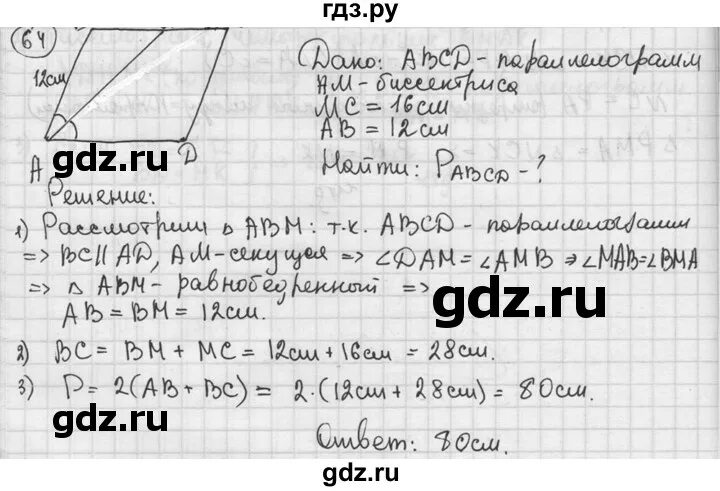 гдз.ру
64
12см
A
D
gdz.ru
Дано: ABCD - параллелограмм
AM - биссектриса
MC = 16см
AB = 12см
Найти: P ABCD - ?
gdz.ru
Решение:
1) Рассмотрим △ ABM: т.к. ABCD - параллелограмм
=> BC || AD, AM - секущая => ∠DAM = ∠AMB => ∠MAB = ∠BMA
=> △ ABM - равнобедренный =>
AB = BM = 12см.
gdz.ru
2) BC = BM + MC = 12см + 16см = 28см.
3) P = 2(AB + BC) = 2·(12см + 28см) = 80см.
gdz.ru
gdz.ru
Ответ: 80см.
gdz.ru